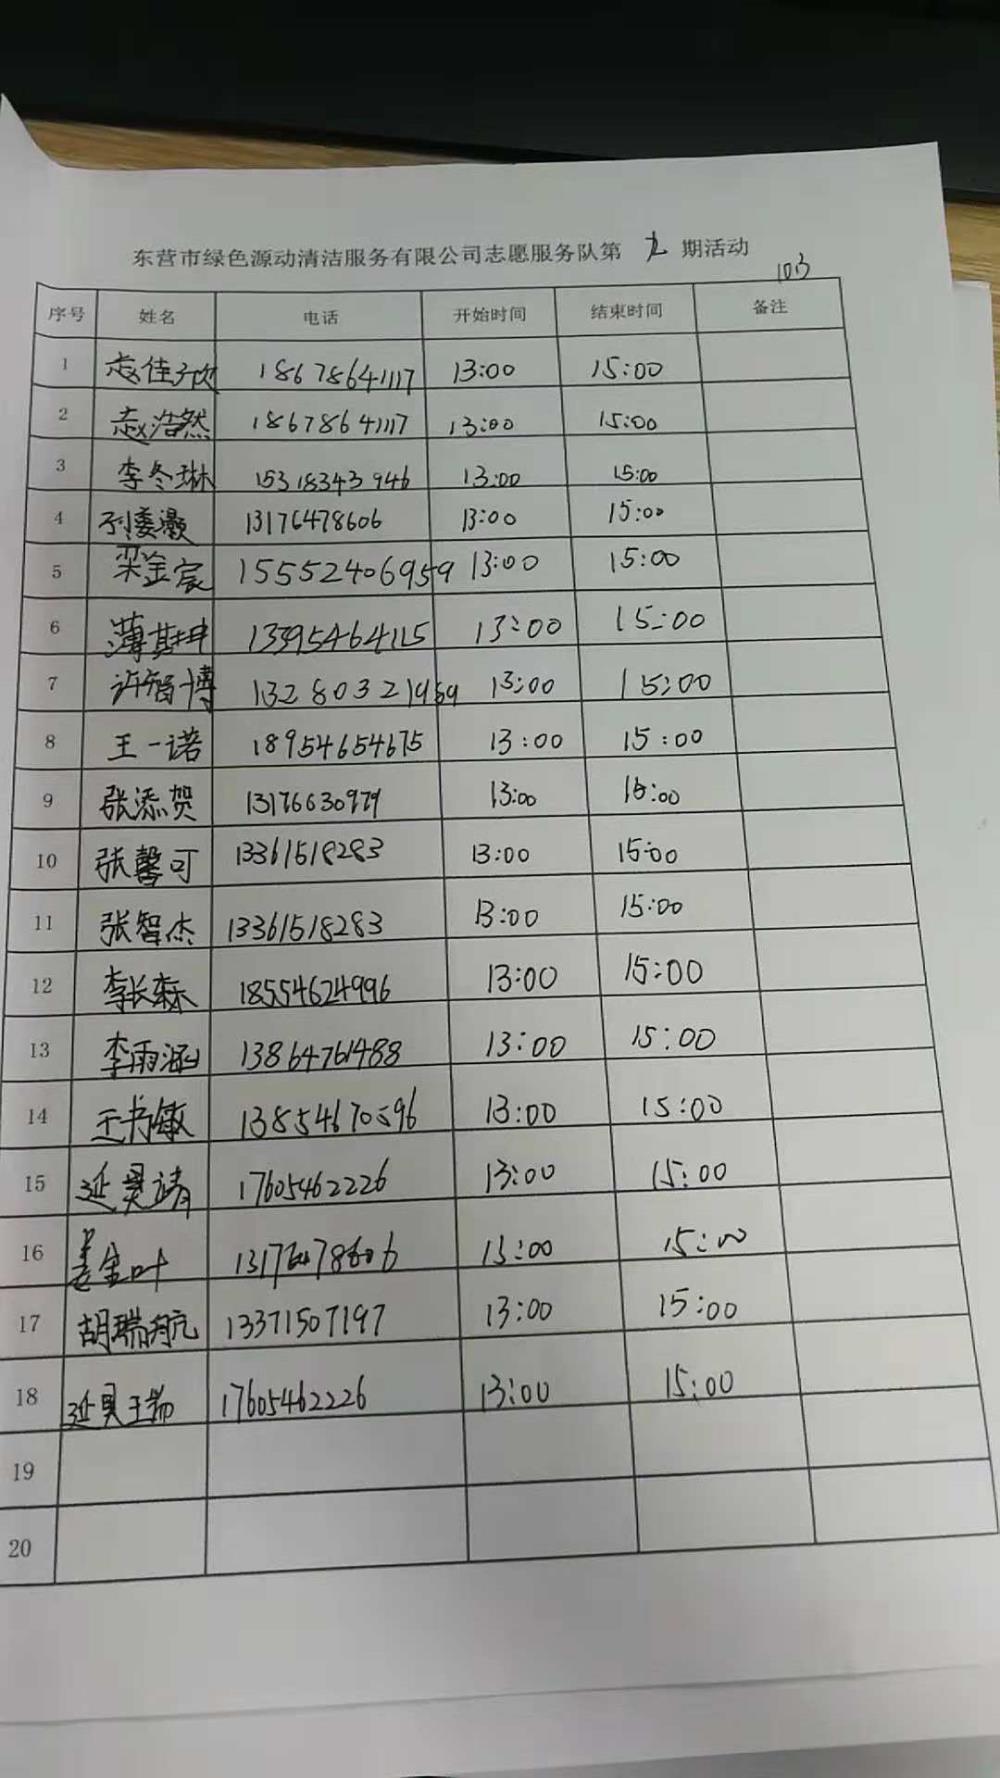 东营市绿色源动清洁服务有限公司志愿服务队第九期活动
103
序号 姓名 电话 开始时间 结束时间 备注
1 赵佳欣 18678641117 13:00 15:00
2 赵浩然 18678641117 13:00 15:00
3 李冬琳 15318343946 13:00 15:00
4 13176478606 13:00 15:00
5 梁金宸 15552406959 13:00 15:00
6 薄其坤 13395464115 13:00 15:00
7 许智博 13280321959 13:00 15:00
8 王一诺 18954654675 13:00 15:00
9 张添贺 13176630979 13:00 15:00
10 张馨可 13361518283 13:00 15:00
11 张智杰 13361518283 13:00 15:00
12 李长森 18554624996 13:00 15:00
13 李雨涵 13864761488 13:00 15:00
14 王书敏 13854670596 13:00 15:00
15 延昊靖 17605462226 13:00 15:00
16 姜金叶 13176478606 13:00 15:00
17 胡瑞航 13371507197 13:00 15:00
18 17605462226 13:00 15:00
19
20